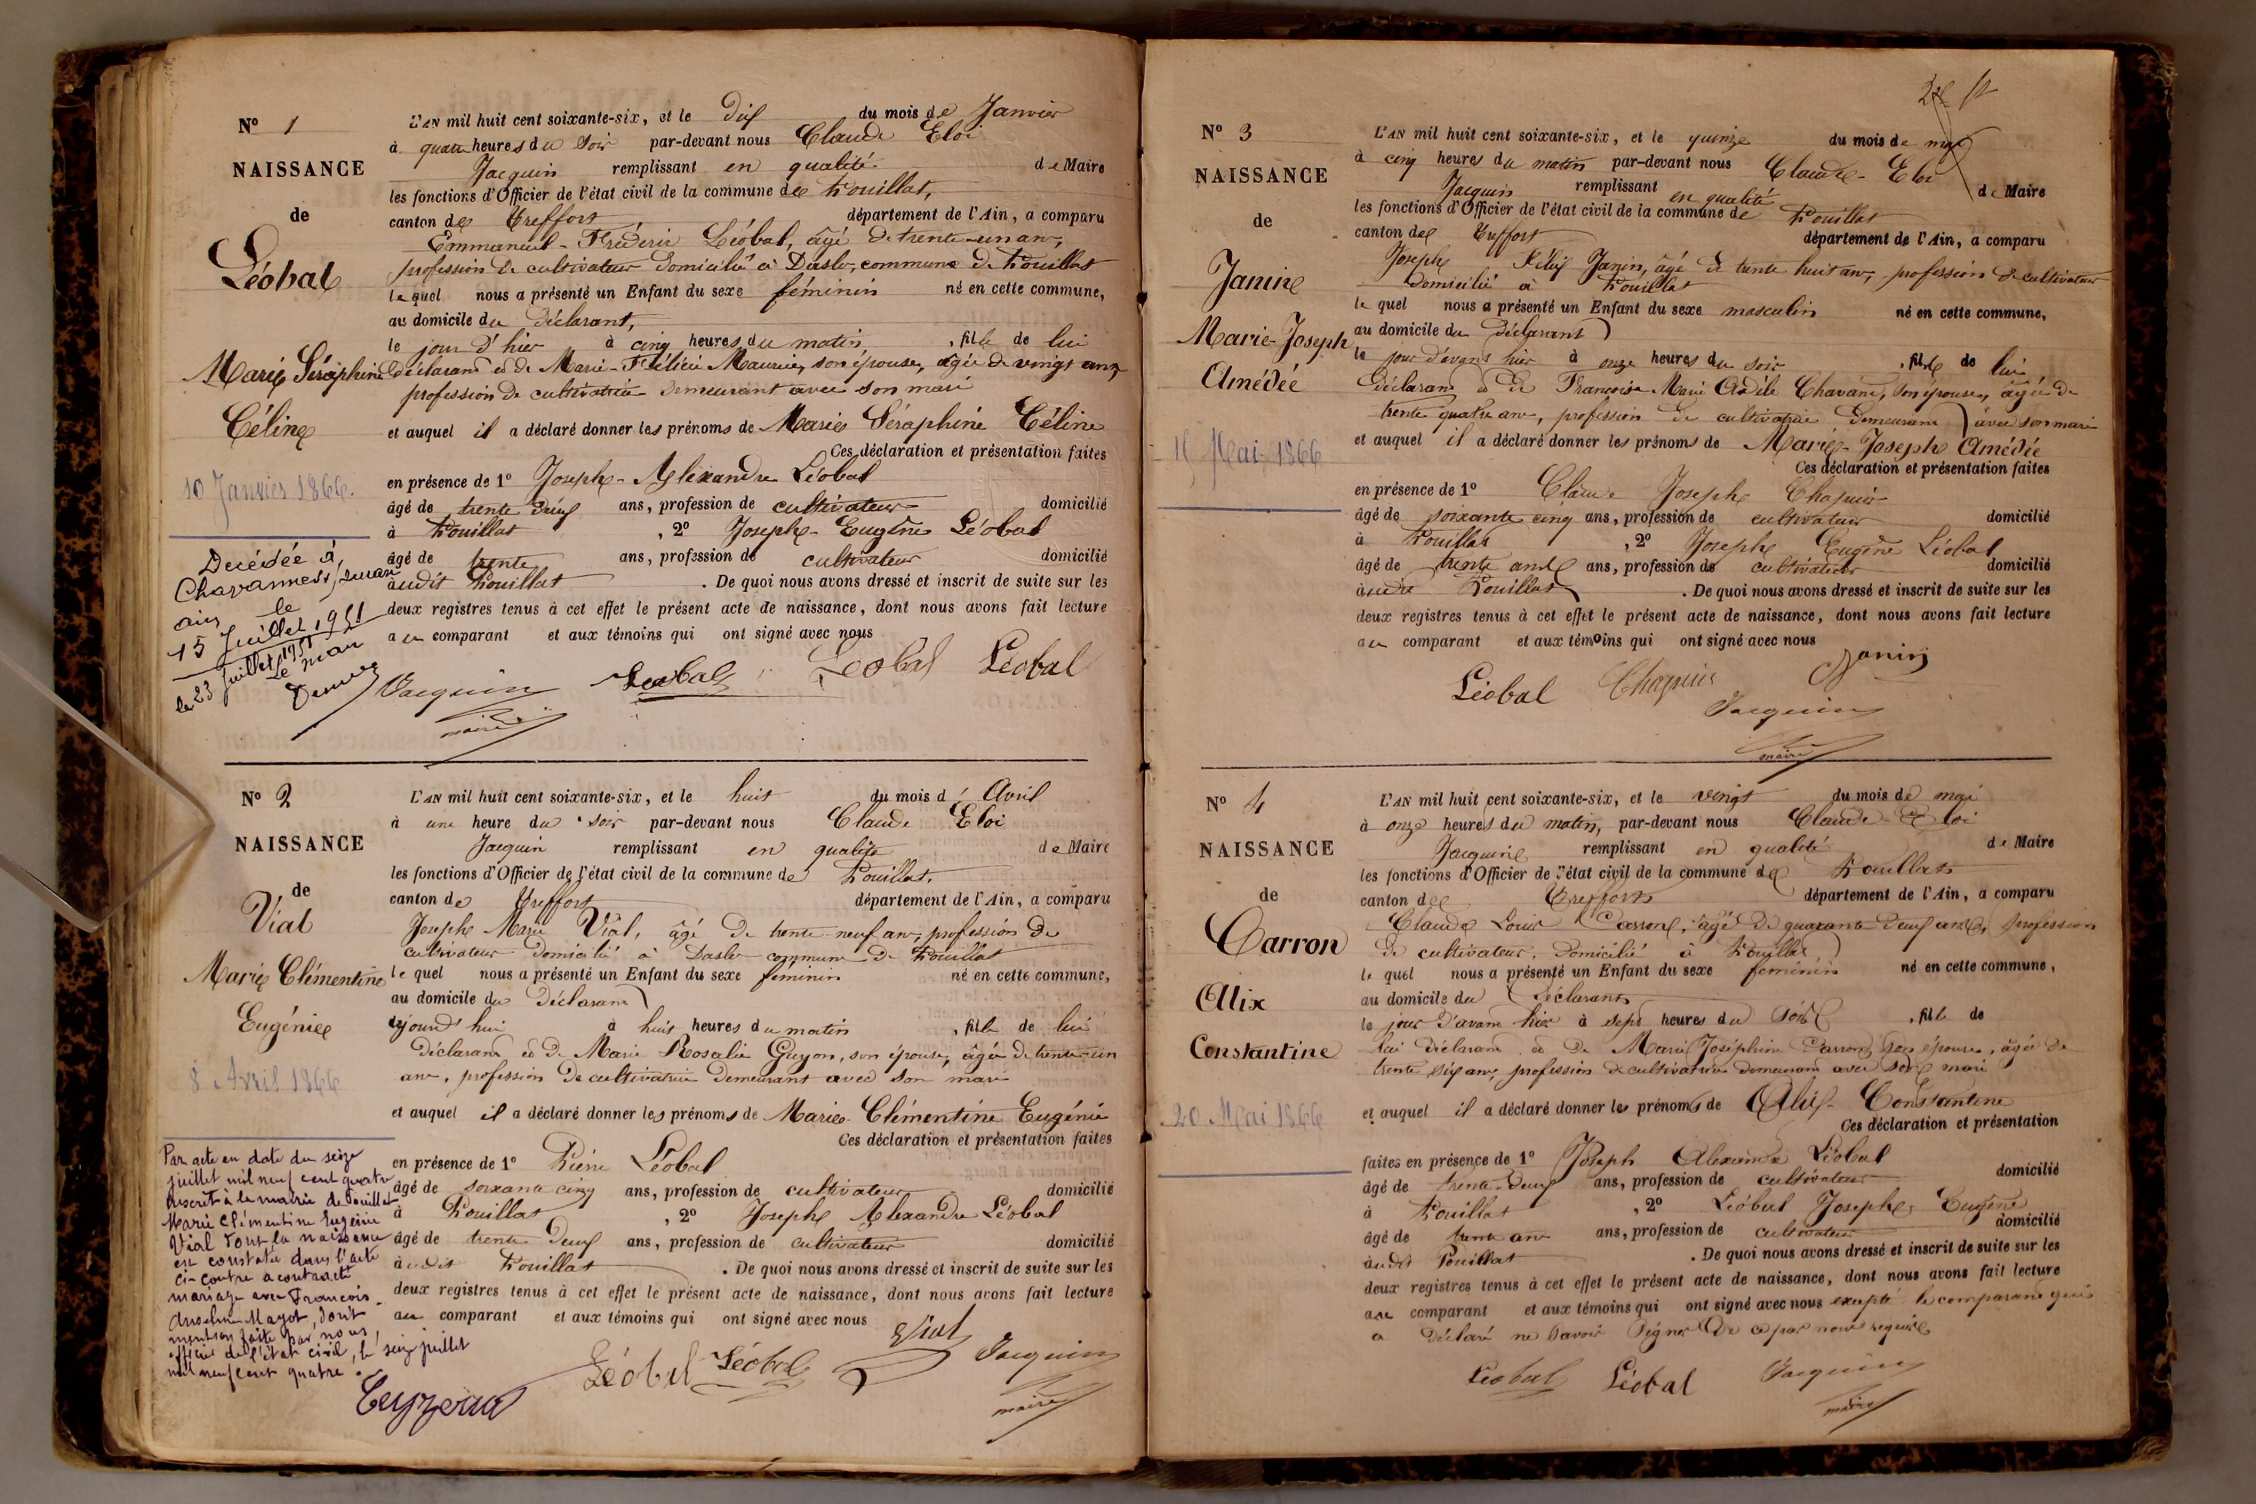 N° 1
NAISSANCE
de
Léobal
Marie Séraphine
Céline
10 Janvier 1866.
Decédée à
Chavannes s/ Suran
ain le
15 Juillet 1951
le 23 Juillet 1951
Le maire
L'AN mil huit cent soixante-six, et le dix du mois de Janvier
à quatre heures du soir par-devant nous Claude Eloi
Jacquin remplissant en qualité de Maire
les fonctions d'Officier de l'état civil de la commune de Pouillat,
canton de Treffort département de l'Ain, a comparu
Emmanuel-Fréderic Léobal, âgé de trente-un ans,
profession de cultivateur domicilié à Dasle, commune de Pouillat
lequel nous a présenté un Enfant du sexe féminin né en cette commune,
au domicile du Déclarant,
le jour d'hier à cinq heures du matin, fille de lui
déclarant et de Marie-Félicie Maurier, son épouse, âgée de vingt ans,
profession de cultivatrice demeurant avec son mari
et auquel il a déclaré donner les prénoms de Marie Séraphine Céline
Ces déclaration et présentation faites
en présence de 1° Joseph-Alexandre Léobal
âgé de trente deux ans, profession de cultivateur domicilié
à Pouillat, 2° Joseph-Eugène Léobal
âgé de trente ans, profession de cultivateur domicilié
audit Pouillat. De quoi nous avons dressé et inscrit de suite sur les
deux registres tenus à cet effet le présent acte de naissance, dont nous avons fait lecture
au comparant et aux témoins qui ont signé avec nous
Jacquin Léobal Léobal Léobal
maire
N° 2
NAISSANCE
de
Vial
Marie Clémentine
Eugénie
8 Avril 1866
Par acte en date du seize
juillet mil neuf cent quatre
inscrit à la mairie de Pouillat
Marie Clémentine Eugénie
Vial dont la naissance
est constatée dans l'acte
ci-contre a contracté
mariage avec François
Anselme Mayot, dont
mention faite par nous,
officier de l'état civil, le seize juillet
mil neuf cent quatre.
L'AN mil huit cent soixante-six, et le huit du mois d'Avril
à une heure du soir par-devant nous Claude Eloi
Jacquin remplissant en qualité de Maire
les fonctions d'Officier de l'état civil de la commune de Pouillat,
canton de Treffort département de l'Ain, a comparu
Joseph Marie Vial, âgé de trente-neuf ans, profession de
cultivateur domicilié à Dasle commune de Pouillat
lequel nous a présenté un Enfant du sexe féminin né en cette commune,
au domicile du Déclarant
aujourd'hui à huit heures du matin, fille de lui
Déclarant et de Marie Rosalie Guyon, son épouse, âgée de trente-un
ans, profession de cultivatrice demeurant avec son mari
et auquel il a déclaré donner les prénoms de Marie Clémentine Eugénie
Ces déclaration et présentation faites
en présence de 1° Pierre Léobal
âgé de soixante cinq ans, profession de cultivateur domicilié
à Pouillat, 2° Joseph Alexandre Léobal
âgé de trente deux ans, profession de cultivateur domicilié
audit Pouillat. De quoi nous avons dressé et inscrit de suite sur les
deux registres tenus à cet effet le présent acte de naissance, dont nous avons fait lecture
au comparant et aux témoins qui ont signé avec nous
Léobal Léobal Vial Jacquin
maire
N° 3
NAISSANCE
de
Janin
Marie-Joseph
Amédée
15 Mai 1866
L'AN mil huit cent soixante-six, et le quinze du mois de mai
à cinq heures du matin par-devant nous Claude-Eloi
Jacquin remplissant en qualité de Maire
les fonctions d'Officier de l'état civil de la commune de Pouillat
canton de Treffort département de l'Ain, a comparu
Joseph Félix Janin, âgé de trente huit ans, profession de cultivateur
domicilié à Pouillat
lequel nous a présenté un Enfant du sexe masculin né en cette commune,
au domicile du Déclarant
le jour d'avant hier à onze heures du soir, fils de lui
Déclarant et de Françoise Marie Adèle Chavant, son épouse, âgée de
trente quatre ans, profession de cultivatrice demeurant avec son mari
et auquel il a déclaré donner les prénoms de Marie-Joseph Amédée
Ces déclaration et présentation faites
en présence de 1° Claude Joseph Chapuis
âgé de soixante cinq ans, profession de cultivateur domicilié
à Pouillat, 2° Joseph Eugène Léobal
âgé de trente ans, profession de cultivateur domicilié
audit Pouillat. De quoi nous avons dressé et inscrit de suite sur les
deux registres tenus à cet effet le présent acte de naissance, dont nous avons fait lecture
au comparant et aux témoins qui ont signé avec nous
Janin
Léobal Chapuis Jacquin
maire
N° 4
NAISSANCE
de
Carron
Alix
Constantine
20 Mai 1866
L'AN mil huit cent soixante-six, et le vingt du mois de mai
à onze heures du matin, par-devant nous Claude-Eloi
Jacquin remplissant en qualité de Maire
les fonctions d'Officier de l'état civil de la commune de Pouillat
canton de Treffort département de l'Ain, a comparu
Claude Louis Carron, âgé de quarante deux ans, profession
de cultivateur, domicilié à Pouillat
lequel nous a présenté un Enfant du sexe féminin né en cette commune,
au domicile du Déclarant
le jour d'avant hier à sept heures du soir, fille de
lui déclarant et de Marie Joséphine Carron, son épouse, âgée de
trente six ans, profession de cultivatrice demeurant avec son mari
et auquel il a déclaré donner les prénoms de Alix-Constantine
Ces déclaration et présentation
faites en présence de 1° Joseph Alexandre Léobal
âgé de trente-deux ans, profession de cultivateur domicilié
à Pouillat, 2° Léobal Joseph Eugène
âgé de trente ans ans, profession de cultivateur domicilié
audit Pouillat. De quoi nous avons dressé et inscrit de suite sur les
deux registres tenus à cet effet le présent acte de naissance, dont nous avons fait lecture
au comparant et aux témoins qui ont signé avec nous excepté le comparant qui
a déclaré ne savoir signer de ce par nous requis
Léobal Léobal Jacquin
maire